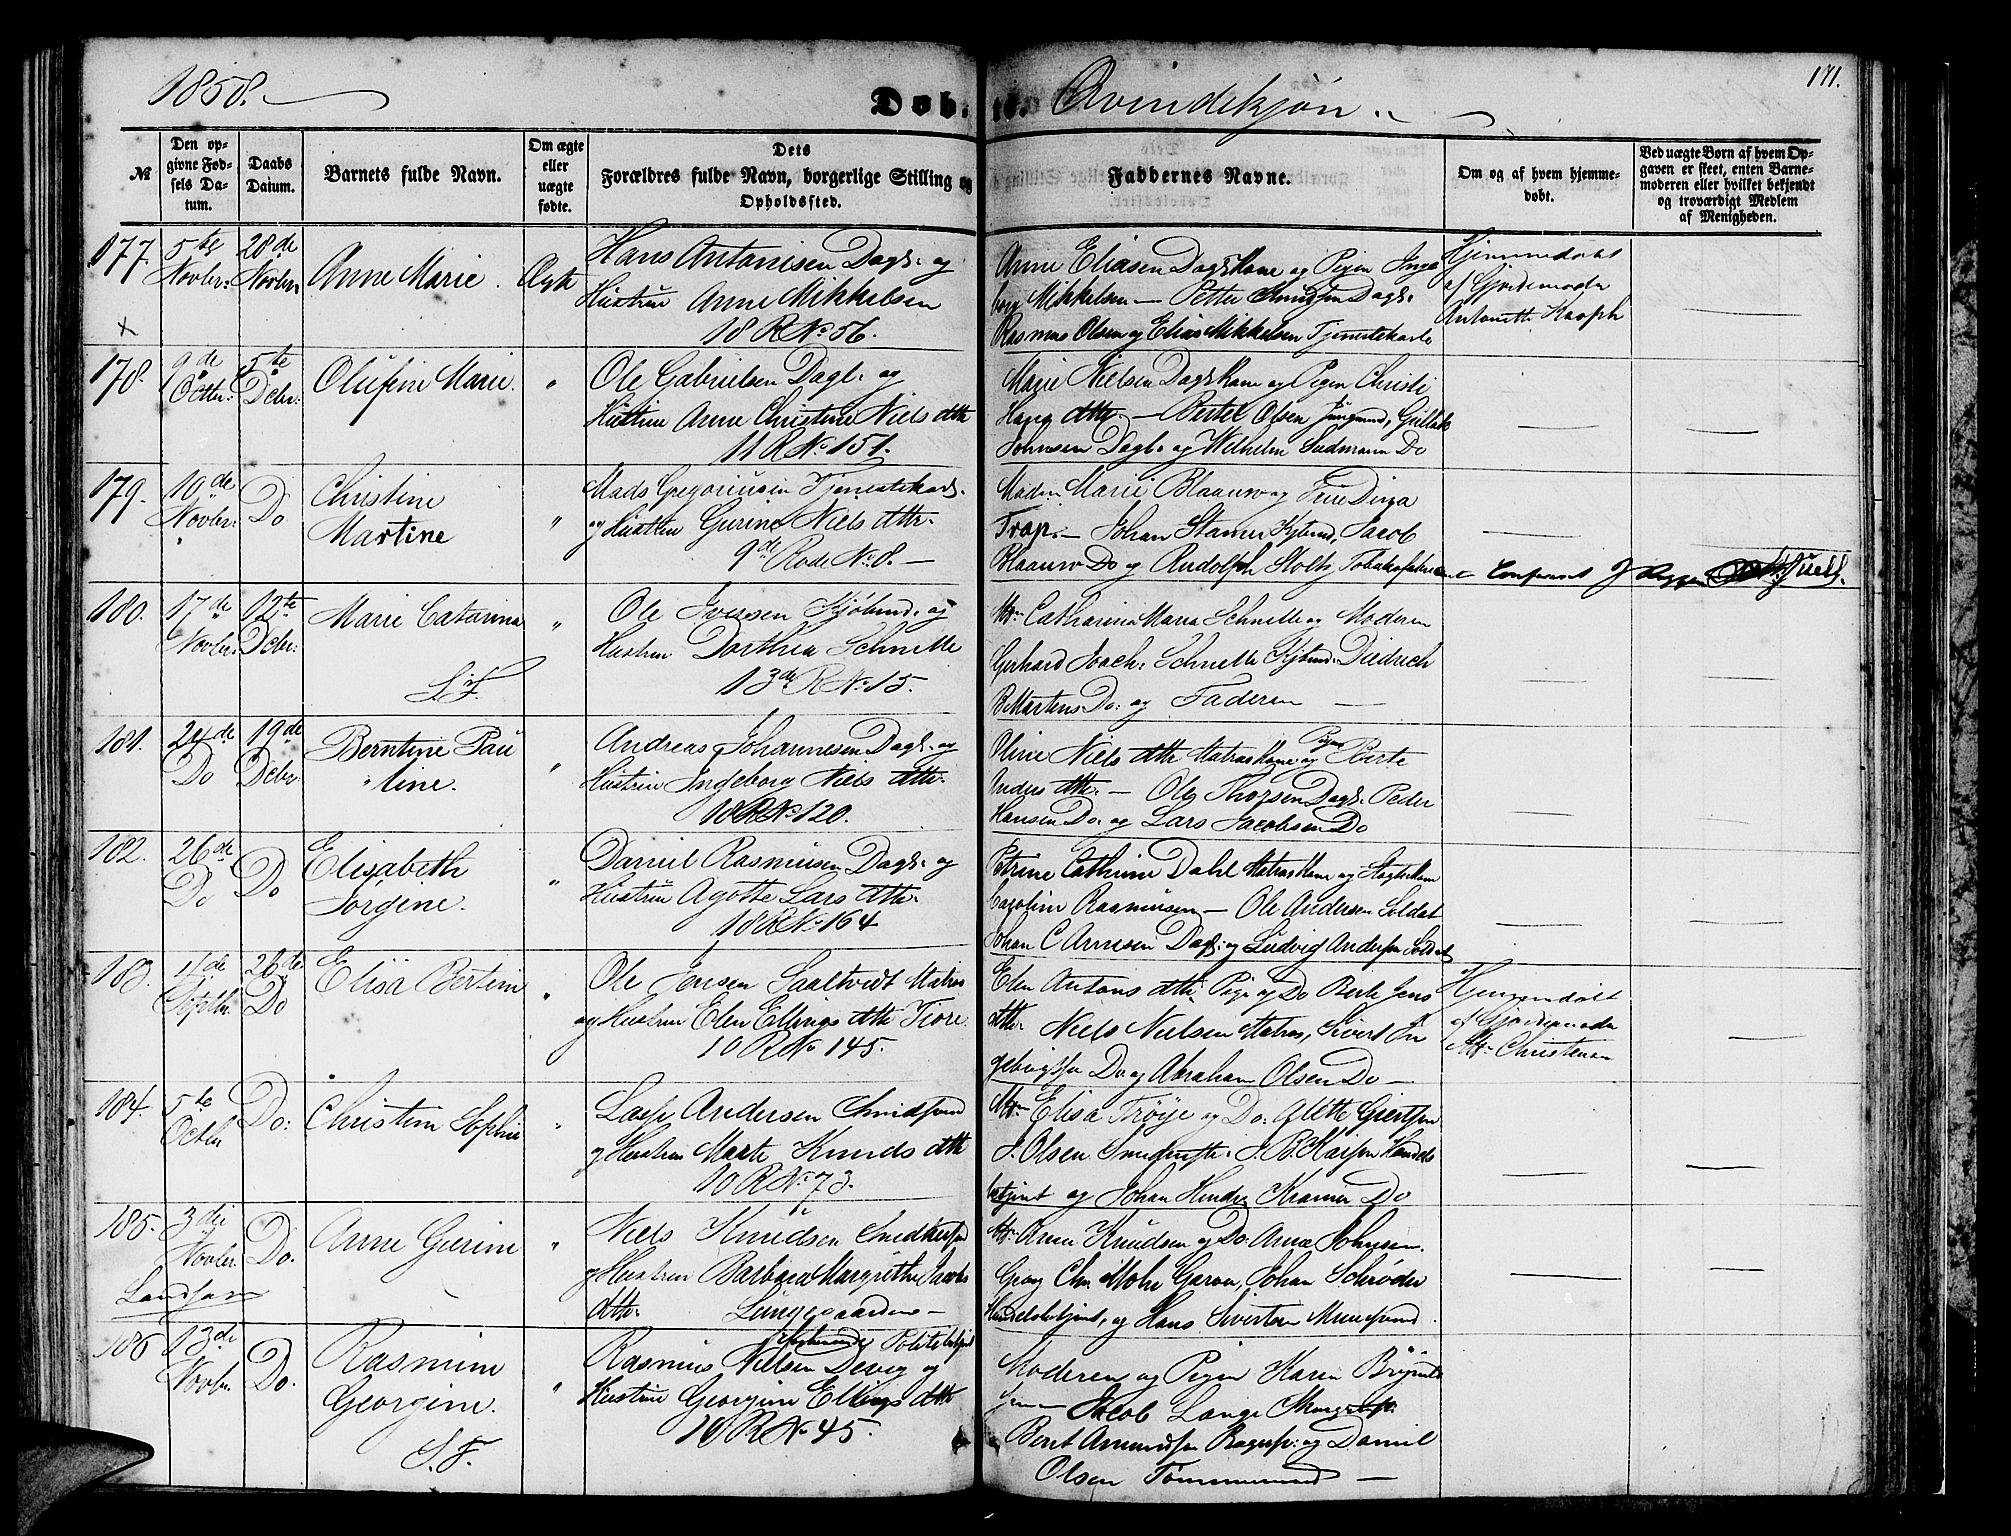 1858.
Døb-
te.
Qvindekjøn.
171.
№
Den op-
givne Fød-
sels Da-
tum.
Daabs
Datum.
Barnets fulde Navn.
Om ægte
eller
uægte
fødte.
Dets
Forældres fulde Navn, borgerlige Stilling og
Opholdssted.
Faddernes Navne.
Om og af hvem hjemme-
døbt.
Ved uægte Børn af hvem Op-
gaven er skeet, enten Barne-
moderen eller hvilket bekjendt
og troværdigt Medlem
af Menigheden.
177.
5te
Novbr:
28de
Novbr:
Anne Marie.
Ægte
Hans Antonisen Dagl. og
Hustrue Anne Mikkelsen
18 R No 56.
Anne Eliasen Daglkone og Pigen Inge
borg Mikkelsen — Petter Knudsen Dagl.
Rasmus Olsen og Elias Mikkelsen Tjenestekarle
Hjemmedøbt
af Gjordemoder
Antonette Kaaph
178.
9de
Octbr:
5te
Dcbr:
Olufine Marie.
"
Ole Gabrielsen Dagl. og
Hustrue Anne Christine Niels dtr
11 R No 151.
Marie Nielsen Daglkone og Pigen Christi
Hans dtr. — Bertel Olsen Jungmd, Gullak
Johnsen Dagl. og Wilhelm Sudmann Do
179.
10de
Novbr:
Do
Christine
Martine
"
Mads Gregoriusen Tjenestekarl.
og Hustrue Gurine Niels dtr.
9de Rode No 8. —
Madm Marie Blaauw og Frue Dina
Trap. — Johan Stamer Kjbmd, Jacob
Blaauw Do og Rudolph Stoltz Tobaksfabrikant
180.
17de
Novbr:
12te
Dcbr:
Marie Catarina
S. F.
"
Ole Iversen Kjøbmd. og
Hustrue Dorthea Schnelle
13de R No 15.
Mm Catharina Maria Schnelle og Moderen
Gerhard Joach. Schnelle Kjbmd. Diedrich
B. Martens Do: og Faderen —
181.
24de
Do
19de
Dcbr
Berntine Pau
line.
"
Andreas Johannesen Dagl. og
Hustrue Ingeborg Niels dtr.
18 R No 120.
Oline Niels dtr Matroskone og Pigen Berte
Anders dtr. — Ole Thorsen Dagl. Peder
Hansen Do. og Lars Jacobsen Do
182.
26de
Do
Do
Elisabeth
Jørgine.
"
Daniel Rasmusen Dagl. og
Hustrue Agotte Lars dtr.
18 R No 164
Petrine Cathrine Dahl Matroskone og
Caroline Rasmusen — Ole Andersen Soldat
Johan C Arnesen Dagl. og Ludvig Andersen Soldat
183.
Septbr.
26de
Do
Elisa Bertine
"
Ole Jensen Saaltvedt Matros
og Hustrue Elen Ellings dtr Fiore
10 R No 145.
Elen Antons dtr Pige og Do Berte Jens
dtr. Niels Nielsen Matros, Sivert In
gebrigtsen Do og Abraham Olsen Do —
Hjemmedøbt
af Gjordemoder
Mm Christensen
184.
5te
Octbr
Do:
Christine Sophie
"
Lasse Andersen Smedsvend
og Hustrue Marte Knuds dtr
10 R No 73.
Mm Elisa Trøye og Do: Alette Giertsen
betjent og Johan Hendr Kramer Do
185.
3die
Novbr.
Do.
Anne Gurine
"
Niels Knudsen
og Hustrue Barbara Margrethe Jacobs
dtr. Lunggaarden —
Mm Anne Knudsen og Do. Anna Johnsen.
Georg Chr. Mohr Garver, Johan Schrøder
Handelsbetjent, og Hans Sivertsen Muursvend.
Landsogn
186
13de
Novbr.
Do.
Rasmine
Georgine.
S. F.
"
Rasmus Nielsen Devig og
Hustrue Georgine Ellings dtr
16 R No 45.
Moderen og Pigen Karen Brynild
sen — Jacob Lange
Bent Amundsen Bagersv: og Daniel
Olsen Tømmermand —